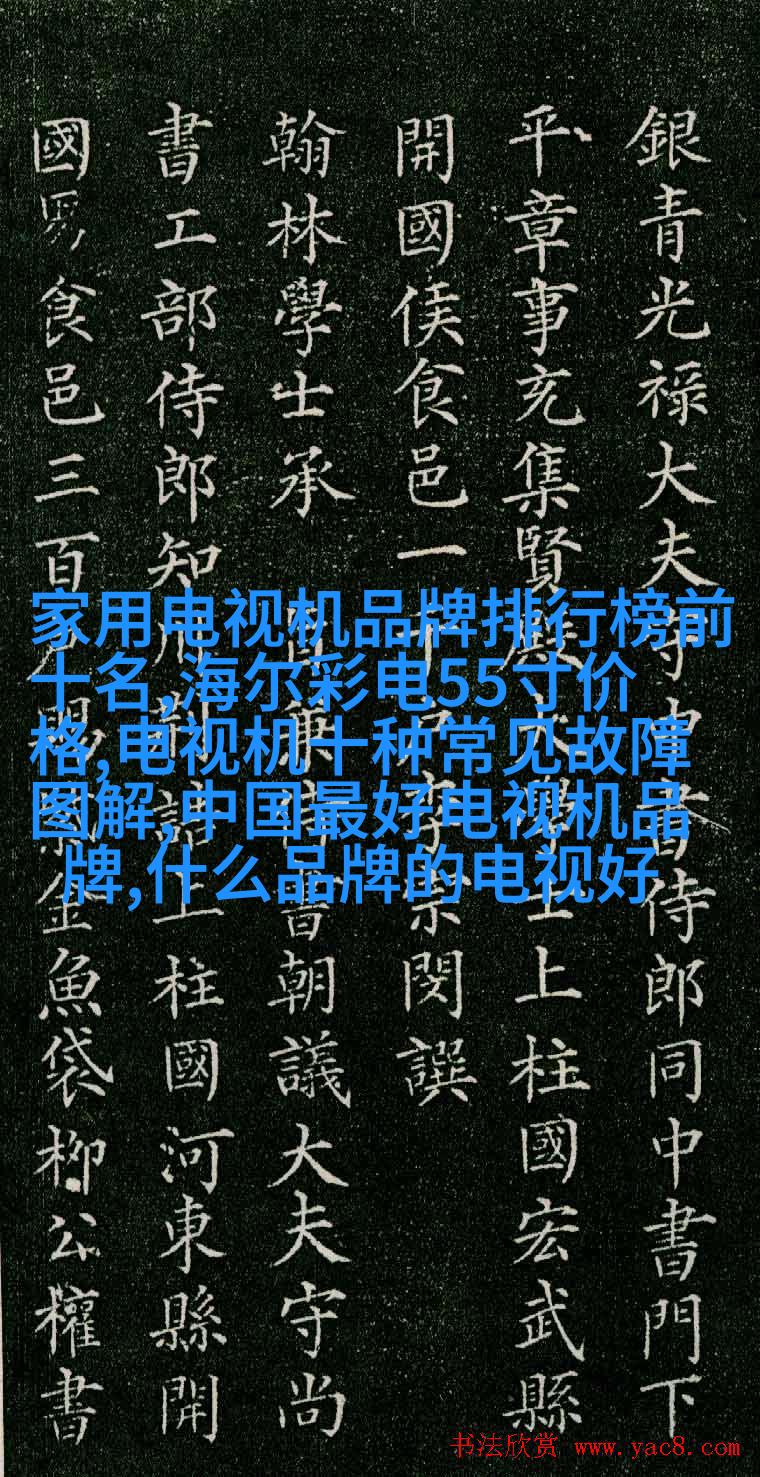 銀青光禄大夫守中書侍郎同中書門下
平章事充集賢殿大學士上柱國宏武縣
開國侯食邑一千戶李宗閔撰
翰林學士承旨兼侍書朝議大夫守尚
書工部侍郎知制誥上柱國河東縣開
國男食邑三百戶賜紫金魚袋柳公權書
家用电视机品牌排行榜前
十名,海尔彩电55寸价
格,电视机十种常见故障
图解,中国最好电视机品
牌,什么品牌的电视好
书法欣赏 www.yac8.com